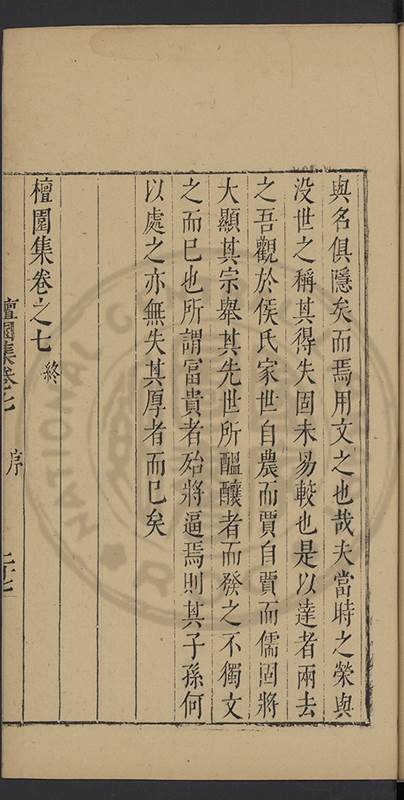 與名俱隱矣而焉用文之也哉夫當時之榮與
没世之稱其得失固未易較也是以達者兩去
之吾觀於侯氏家世自農而賈自賈而儒固將
大顯其宗舉其先世所醞釀者而發之不獨文
之而已也所謂富貴者殆將逼焉則其子孫何
以處之亦無失其厚者而已矣
檀園集卷之七 終
檀園集卷七 序